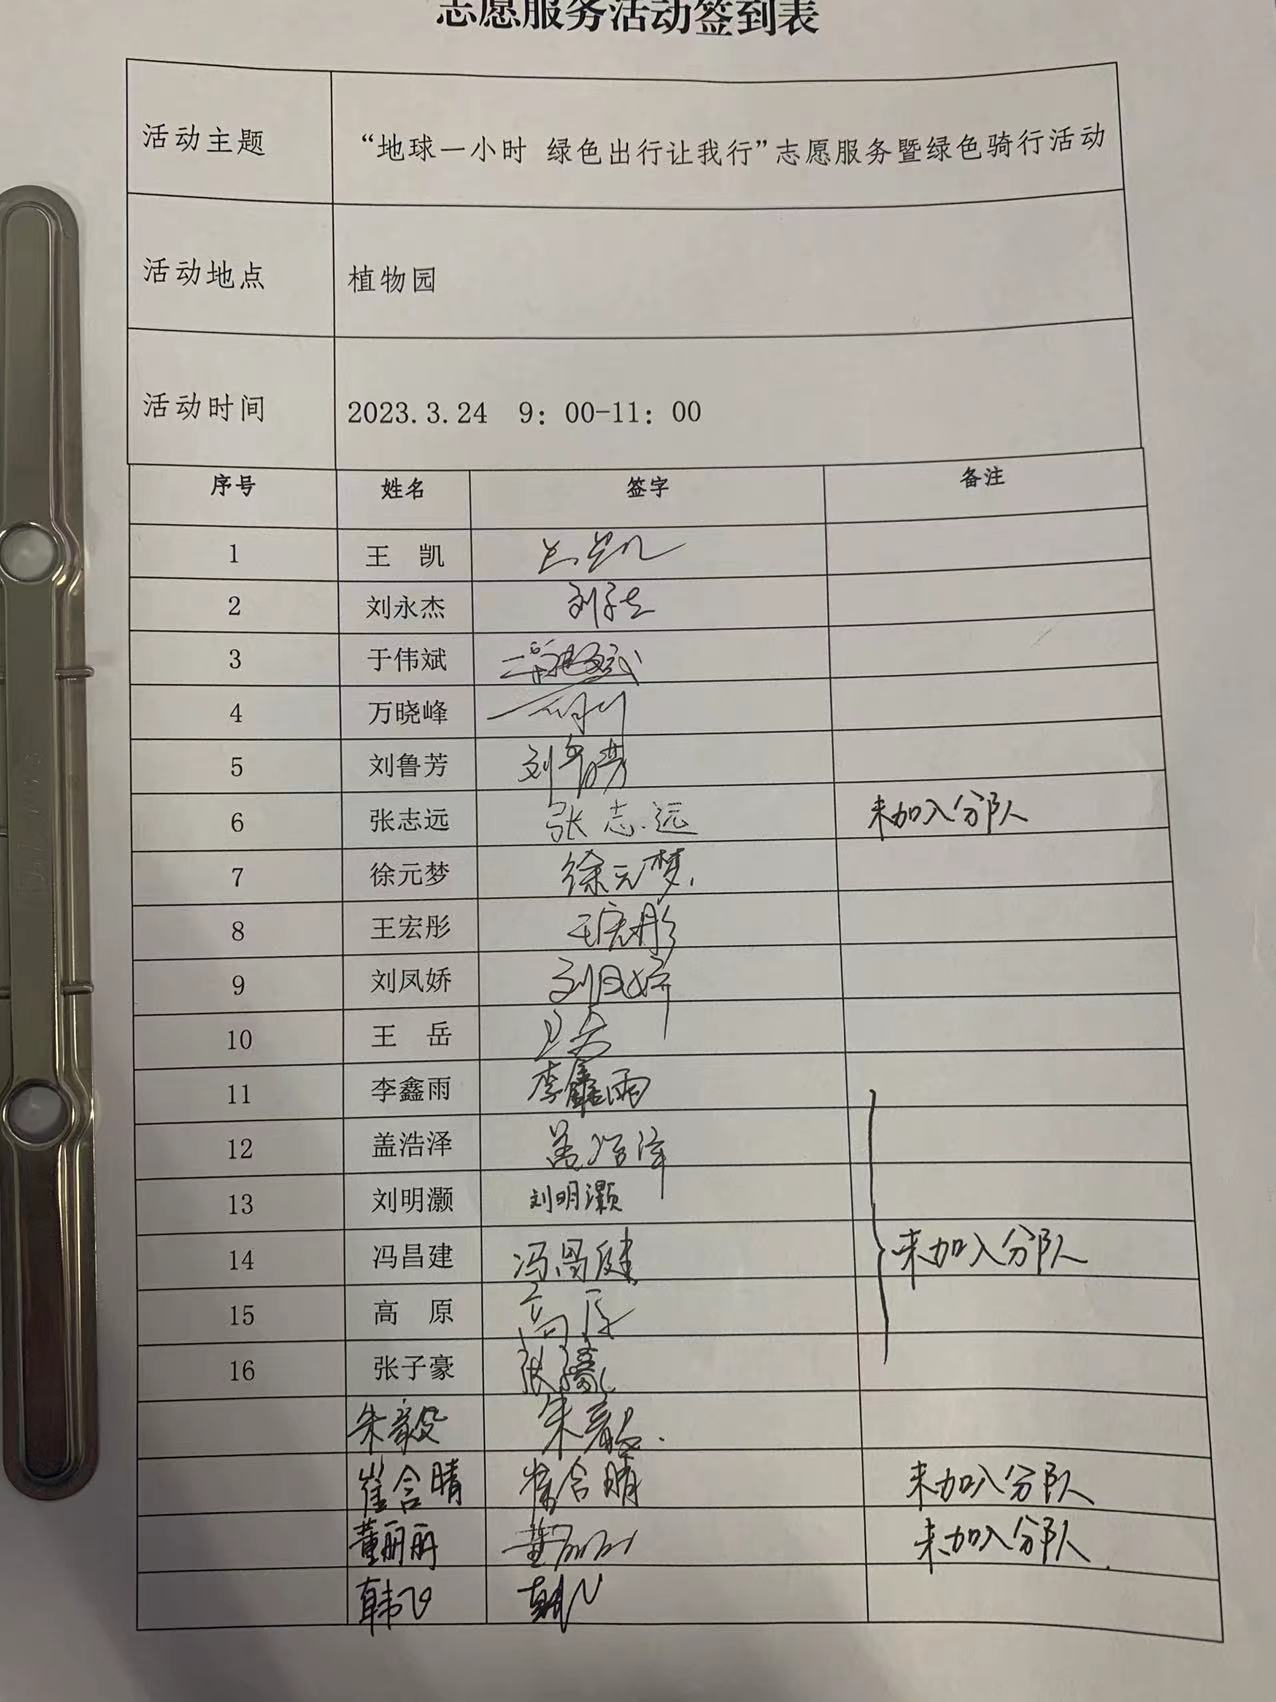 志愿服务活动签到表
活动主题 “地球一小时 绿色出行让我行”志愿服务暨绿色骑行活动
活动地点 植物园
活动时间 2023.3.24 9：00-11：00
序号 姓名 签字 备注
1 王 凯
2 刘永杰
3 于伟斌
4 万晓峰
5 刘鲁芳 刘鲁芳
6 张志远 张志远 未加入分队
7 徐元梦 徐元梦
8 王宏彤 王宏彤
9 刘凤娇 刘凤娇
10 王 岳 王岳
11 李鑫雨 李鑫雨
12 盖浩泽 盖浩泽
13 刘明灏 刘明灏
14 冯昌建 冯昌建 未加入分队
15 高 原 高原
16 张子豪 张子豪
朱毅 朱毅
崔含晴 崔含晴 未加入分队
董丽丽 董丽丽 未加入分队
韩飞 韩飞